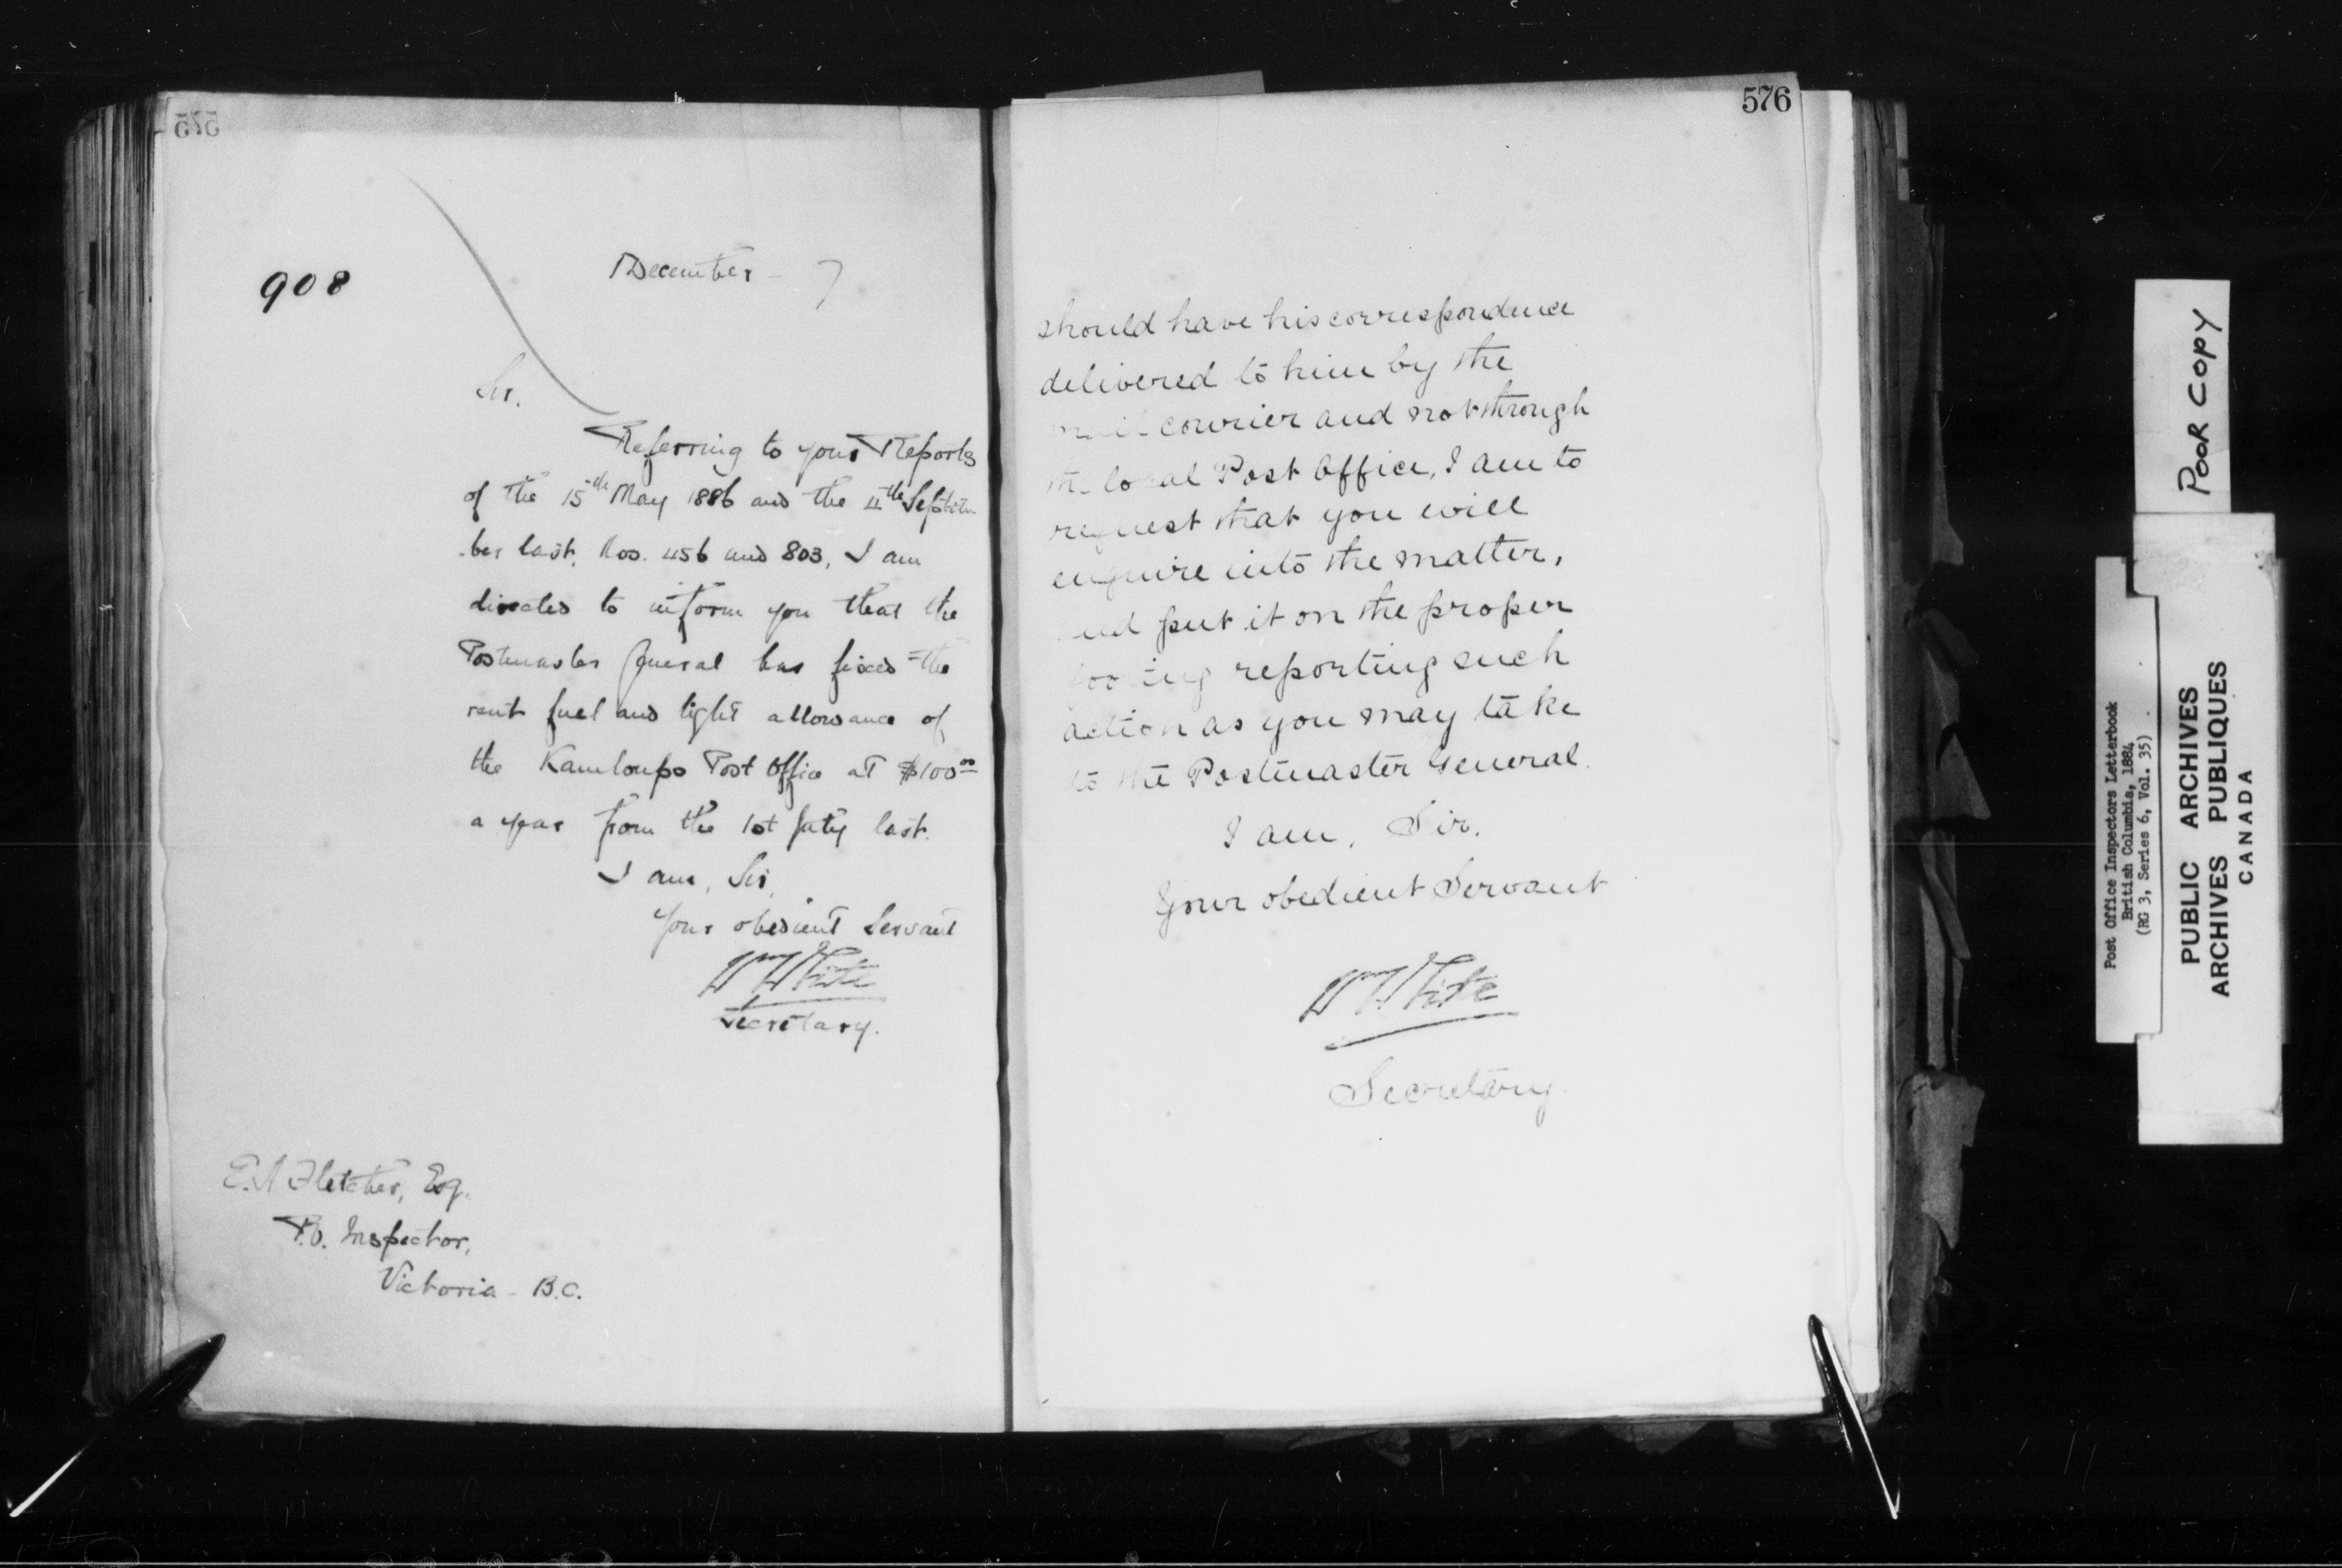 575
908
December - 7
Sir.
Referring to your Reports
of the 15th May 1886 and the 4th Septem
-ber last, Nos. 456 and 803, I am
directed to inform you that the
Postmaster General has fixed the
rent fuel and light allowance of
the Kamloops Post Office at $100 00
a year from the 1st July last.
I am, Sir,
Your obedient Servant
Wm White
Secretary.
E.H Fletcher, Esq.
P.O. Inspector,
Victoria - B.C.
576
should have his correspondence
delivered to him by the
courier and not through
the local Post Office, I am to
request that you will
enquire into the matter,
and put it on the proper
footing reporting such
action as you may take
to the Postmaster General.
I am, Sir.
Your obedient Servant
Wm White
Secretary.
POOR COPY
Post Office Inspectors Letterbook
British Columbia, 1884
(RG 3, Series 6, Vol. 35)
PUBLIC ARCHIVES
ARCHIVES PUBLIQUES
CANADA